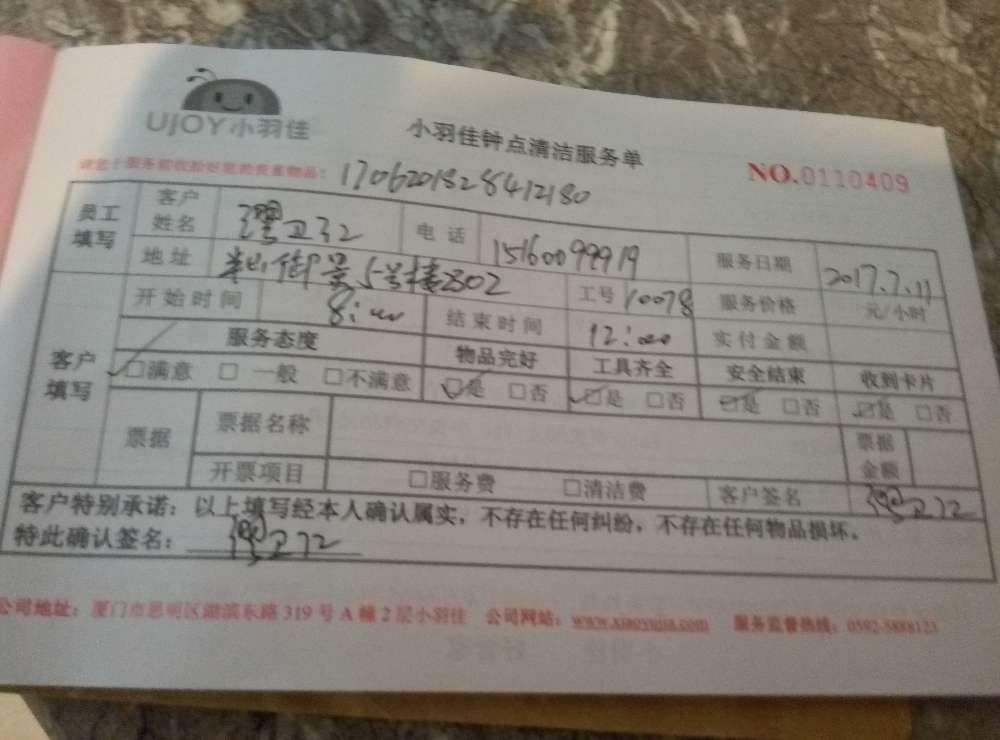 UJOY小羽佳
小羽佳钟点清洁服务单
NO.0110409
请您于服务前收拾好您的贵重物品:
1706201828412180
员工填写 客户姓名 电话 15160099919 服务日期 2017.7.11
地址 御景5号楼2302 工号 10078 服务价格 元/小时
开始时间 8: 结束时间 12:00 实付金额
客户填写 服务态度 物品完好 工具齐全 安全结束 收到卡片
□满意 □一般 □不满意 □是 □否 □是 □否 □是 □否 □是 □否
票据 票据名称 票据金额
开票项目 □服务费 □清洁费 客户签名
客户特别承诺:以上填写经本人确认属实,不存在任何纠纷,不存在任何物品损坏。
特此确认签名:
公司地址:厦门市思明区湖滨东路319号A幢2层小羽佳 公司网站:www.xiaoyujia.com 服务监督热线:0592-5888123